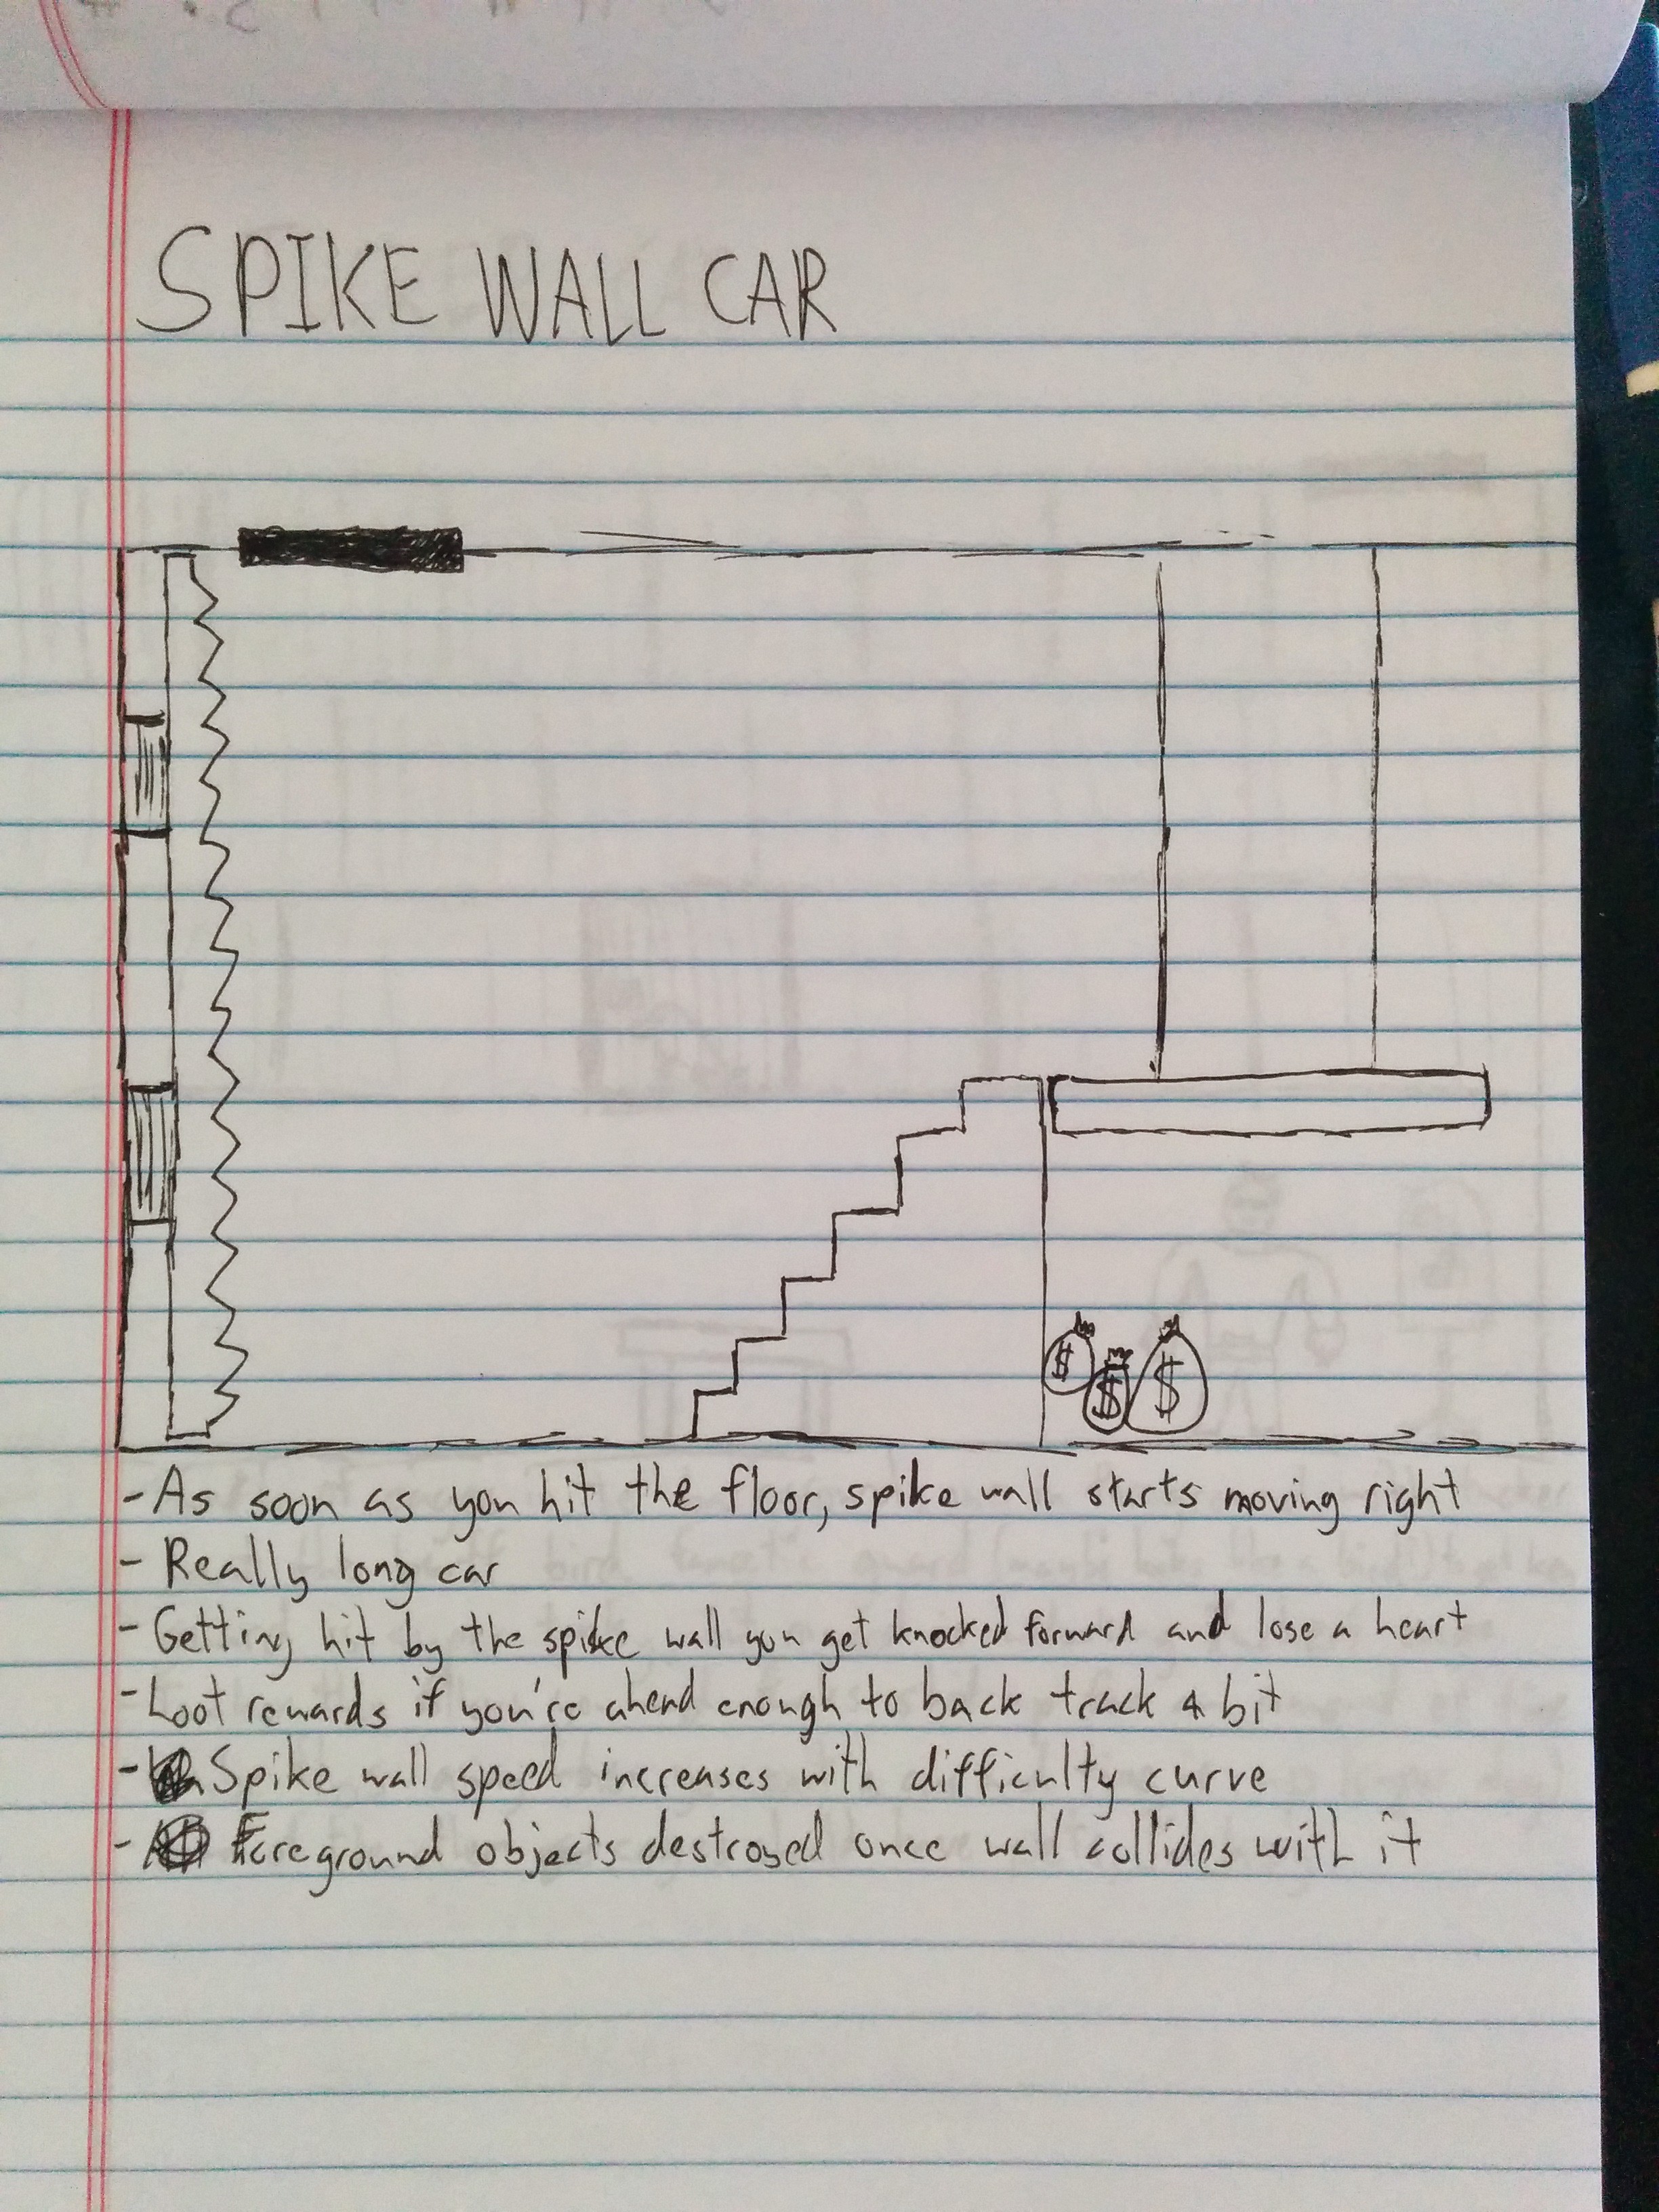 SPIKE WALL CAR
$ $ $
- As soon as you hit the floor, spike wall starts moving right
- Really long car
- Getting hit by the spike wall you get knocked forward and lose a heart
- Loot rewards if you're ahead enough to back track a bit
- Spike wall speed increases with difficulty curve
- Foreground objects destroyed once wall collides with it